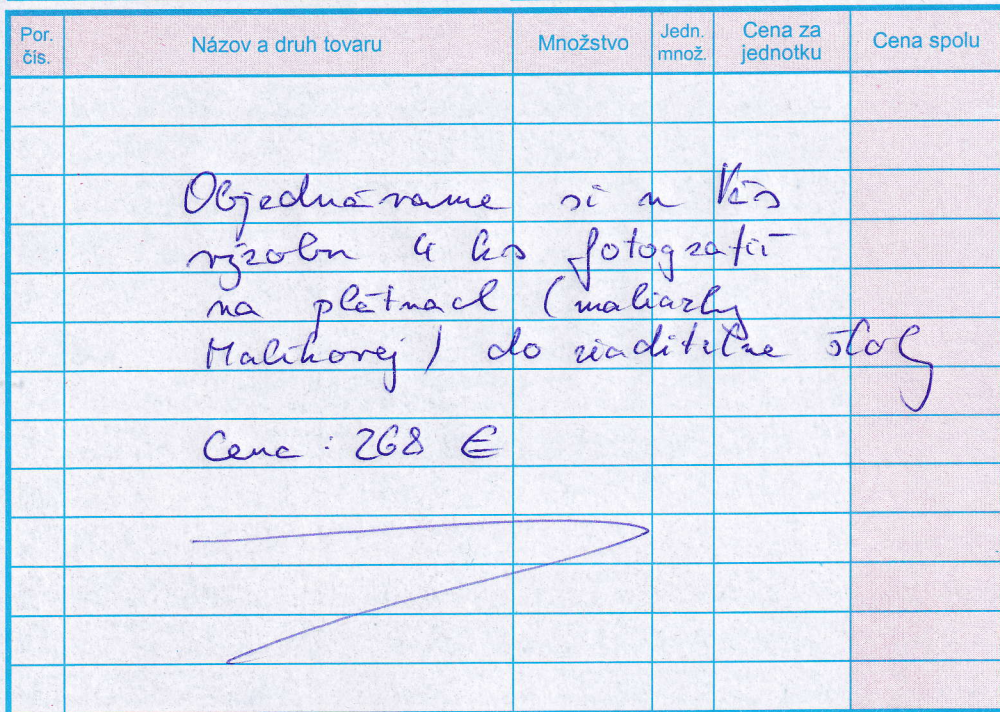 Por. čís.
Názov a druh tovaru
Množstvo
Jedn. množ.
Cena za jednotku
Cena spolu
Objednávame si u Vás
výrobu 4 ks fotografií
na plátnach (maliarky
Malíkovej) do riaditeľne školy
Cena : 268 €